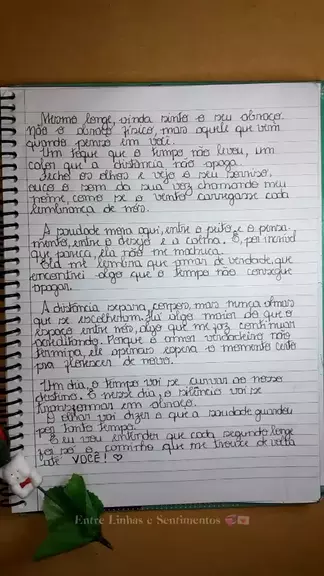 Mesmo longe, ainda sinto o seu abraço.
Não o abraço físico, mas aquele que vem
quando penso em você.
Um toque que o tempo não levou, um
calor que a distância não apaga.
Fecho os olhos e vejo o seu sorriso,
ouço o som da sua voz chamando meu
nome, como se o vento carregasse cada
lembrança de nós.
A saudade mora aqui, entre o peito e o pensa-
mento, entre o desejo e a calma. E, por incrível
que pareça, ela não me machuca.
Ela me lembra que amar de verdade, que
encontrei algo que o tempo não consegue
apagar.
A distância separa corpos, mas nunca almas
que se escolheram. Há algo maior do que o
espaço entre nós, algo que me faz continuar
acreditando. Porque o amor verdadeiro não
termina, ele apenas espera o momento certo
pra florescer de novo.
Um dia, o tempo vai se curvar ao nosso
destino. E nesse dia, o silêncio vai se
transformar em abraço.
O olhar vai dizer o que a saudade guardou
por tanto tempo.
E eu vou entender que cada segundo longe
foi só o caminho que me trouxe de volta
até VOCÊ! ♡
Entre Linhas e Sentimentos